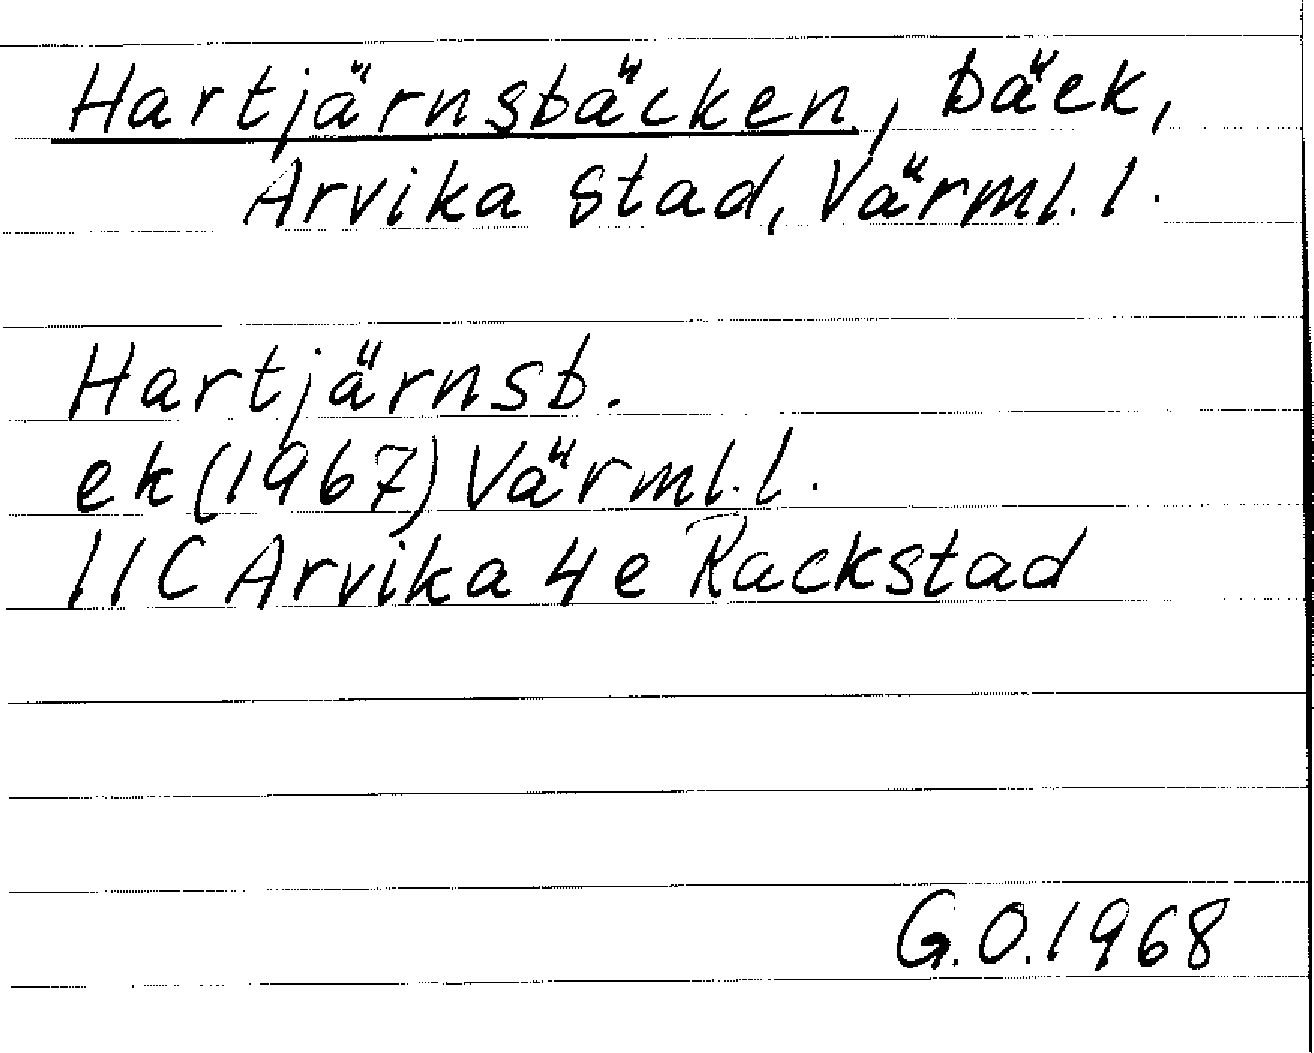 Hartjärnsbäcken, bäck,
Arvika stad, Värml. l.
Hartjärnsb.
ek (1967) Värml. l.
11C Arvika 4e Rackstad
G.O. 1968